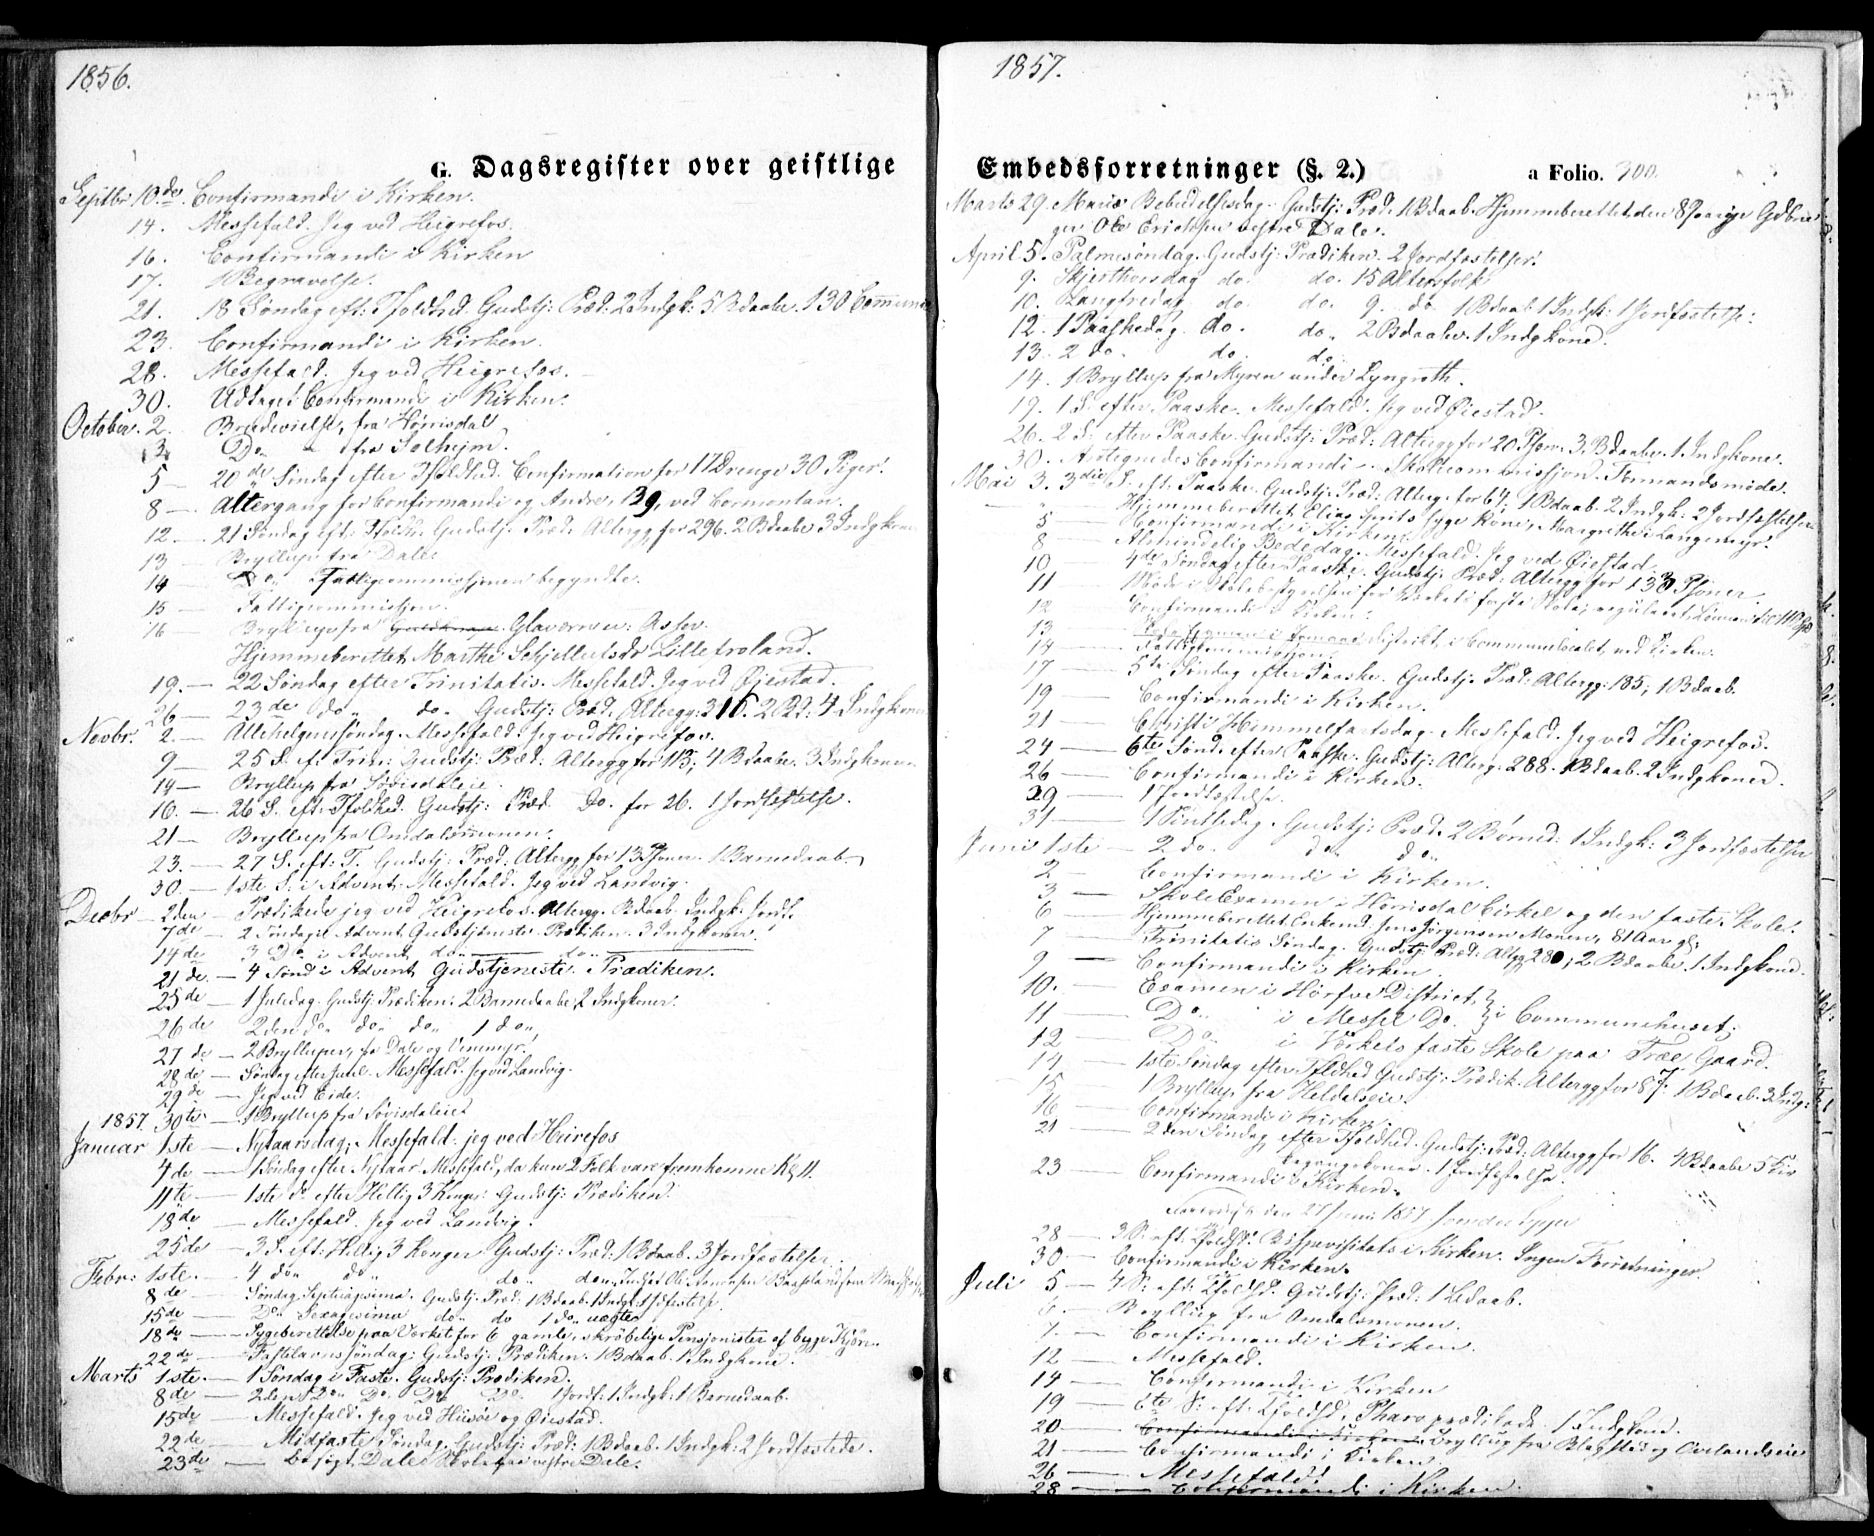 1856.
G. Dagsregister over geistlige
Septbr 10de Confirmandi i Kirken.
14. Messefald. Jeg ved Heigrefos.
16. Confirmandi i Kirken
17. 1 Begravelse.
21. 18 Søndag eft: Tfoldhed. Gudstj: Præd: 2 Indgk: 5 Bdaabe. 130 Commun
23. Confirmandi i Kirken.
28. Messefald. Jeg ved Heigrefos.
30. Udtaget Confirmandi i Kirken.
October. 2. Brudevielse, fra Hørrisdal
3. Do fra Solhejm.
5 — 20de Søndag efter Tfoldhed. Confirmation for 17 Drenge 30 Piger.
8 — Altergang for Confirmandi og Andre, 139, ved Cormontan.
12 — 21 Søndag eft: Tfoldh: Gudstj: Præd: Altergg for 296. 2 Bdaabe 3 Indgkoner
13 — Bryllup fra Dale
14 — Do. Fattigcommissjonen begyndte.
15 — Fattigcommissjon.
16 — Bryllup fra Glavernes: Assev.
Hjemmeberettet Marthe Schjellufsdr Lilletroland.
19. — 22 Søndag efter Trinitatis. Messefald. Jeg ved Øjestad.
26 — 23de do do Gudstj: Præd: Altergg: 316. 2 Bd: 4 Indgkoner
Novbr. 2 — Allehelgenssøndag. Messefald. Jeg ved Heigrefos.
9 — 25 S. ef: Trin: Gudstj: Præd: Altergg for 115; 4 Bdaabe. 3 Indgkoner
14 — Bryllup fra Sørisdaleie.
16. — 26 S. eft: Tfoldhed. Gudstj: Præd Do. for 26. 1 Jordfæstelse.
21 — Bryllup fra Omdalsmonen.
23. — 27 S. eft: T. Gudstj: Præd: Altergg for 13 Psoner. 1 Barnedaab.
30. — 1ste S: i Advent. Messefald. Jeg ved Landvig.
Decbr — 2den — Prædikede jeg ved Heigrefos. Altergg. Bdaab. Indgk. Jordf.
7de — 2 Søndag i Advent. Gudstjeneste. Prædiken. 3 Indgkoner.
14de — 3 Do i Advent, do do
21de — 4 Sønd i Advent, Gudstjeneste. Prædiken.
25de — 1 Juledag. Gudstj: Prædiken. 2 Barnedaabe, 2 Indgkoner.
26de — 2den do do do 1 do
27de — 2 Brylluper, fra Dale og Vemmyr.
28de — Søndag efter Juul. Messefald. Jeg ved Landvig.
29de — Jeg ved Eide.
1857. 30te — 1 Bryllup fra Sørisdaleiet
Januar 1ste — Nytaarsdag, Messefald. jeg ved Heirefos
4de — 1 Søndag efter Nytaar Messefald, da kun 2 Folk vare fremkomne Kl 11.
11te — 1ste do efter Hellig 3 Konger: Gudstj: Prædiken.
18de — Messefald. Jeg ved Landvig.
25de — 3 S. eft: Hellig 3 Konger Gudstj: Præd: 1 Bdaab. 3 Jordfæstelser.
Febr: 1ste. — 4 do do do do
8de — Søndag Septuagesima. Gudstj: Præd: 1 Bdaab. 1 Indgk. 1 Jdfæstelse.
15de — Do Sexagesima do do 1 do uægte
18de — Sygeberettelse paa Værket for 6 gamle, skrøbelige Pensjonister af begge Kjøn.
22de — Fastelavnssøndag: Gudstj: Prædiken. 1 Bdaab. 1 Indgkone.
Marts 1ste. — 1 Søndag i Faste. Gudstj: Prædiken.
8de — 2den Do Do Do Do 1 Jordf: 1 Indgk: 1 Barnedaab.
15de — Messefald. Jeg ved Hiisøe og Øiestad.
22de — Midfaste Søndag. Gudstj: Præd: 1 Bdaab. 1 Indgk: 2 Jordfæstede.
23de — Besigt. Dales Skole paa vestre Dale.
1857.
Embedsforretninger (§. 2.) a Folio. 300.
Marts 29. Mariæ Bebudelsesdag. Gudstj: Præd. 1 Bdaab. Hjemmeberettet den 87 aarige Gdbru
ger Ole Ericksen vestre Dale.
April 5. Palmesøndag. Gudstj: Prædiken. 2 Jordfæstelser.
9. Skjerthorsdag do. do. 15 Altersfolk
10. Langfredag do do. 9. do 1 Bdaab 1 Indgk: 1 Jordfæstelse.
12. 1 Paaskedag. do. do. 2 Bdaabe. 1 Indgkone.
13. 2 do. do. do.
14. 1 Bryllup fra Myren under Lyngroth.
19. 1 S. efter Paaske. Messefald. Jeg ved Øiestad.
26. 2 S. efter Paaske. Gudstj: Præd: Altergg for 20 Pson. 3 Bdaabe. 1 Indgkone.
30. Antegnedes Confirmandi. Skolecommissjon. Formandsmøde.
Mai 3. 3die S. eft. Paaske. Gudstj: Præd: Alterg. for 64; 1 Bdaab. 2 Indgk: 2 Jordfæstelser
Hjemmeberettet Elias Smits syge Kone, Margrethe i Langemyr.
5 Confirmandi i Kirken.
8 — Almindelig Bededag. Messefald. Jeg ved Øiestad.
10 — 4de Søndag efter Paaske. Gudstj: Præd: Altergg for 133 Psoner.
11 — Møde i Skolebestyrelsen for Værkets faste Skole,
12 Confirmandi i Kirken.
13 — Distrikt, i Communelocalet, ved Kirken.
14 — Fattigkommission.
17 — 5te Søndag efter Paaske. Gudstj. Præd. Altergg: 185; 1 Bdaab.
19 — Confirmandi i Kirken.
21 — Christi Himmelfartsdag. Messefald. Jeg ved Heigrefos.
24 — 6te Sønd. efter Paaske. Gudstj: Alterg. 288. 1 Bdaab. 2 Indgkoner.
26 — Confirmandi i Kirken.
29 — 1 Jordfæstelse.
31 — 1 Pintsedag. Gudstj: Præd. 2 Børned: 1 Indgk: 3 Jordfæstelser
Juni 1ste — 2 do. do. do.
2 — Confirmandi i Kirken.
3 — Skole Examen i Hørrisdal Cirkel og den faste Skole.
6 — Hjemmeberettet Enkemd. Jens Jørgensen Monen, 81 Aar gl.
7 — Trinitatis Søndag. Gudstj: Præd: Altgg 280, 2 Bdaabe. 1 Indgkone.
9 — Confirmandi i Kirken.
10. — Examen i Hørfos District,
11 — Do i Messel Do. i Communehuset;
12 — Do i Værkets faste Skole paa Træe Gaard.
14 — 1ste Søndag efter Tfoldhed Gudstj: Prædik. Altergg for 87. 1 Bdaab. 3 Indg:
15 — 1 Bryllup fra Heldalseie.
16 — Confirmandi i Kirken.
21 — 2den Søndag efter Tfoldhed. Gudstj: Præd: Altergg for 16. 4 Bdaabe 5 Kir
kegangskoner. 1 Jordfæstelse.
23 — Confirmandi i Kirken.
den 27 Juni 1857
28 — 3 S. eft. Tfoldhd. Bispevisitats i Kirken. Ingen Forretninger.
30 — Confirmandi i Kirken.
Juli 5 — 4 S. eft. Tfoldhd. Gudstj: Præd: 1 Bdaab.
6. — Bryllup fra Omdalsmonen.
7. — Confirmandi i Kirken.
12 — Messefald.
14 — Confirmandi i Kirken
19 — 6te S: eft. Tfoldhd. Tharo prædikede. 1 Indgkone.
20 — Confirmandi i Kirken Bryllup fra Blagstad og Ovelandseie
21 — Confirmandi i Kirken.
26 — Messefald!
28 — Confirmandi i Kirken.